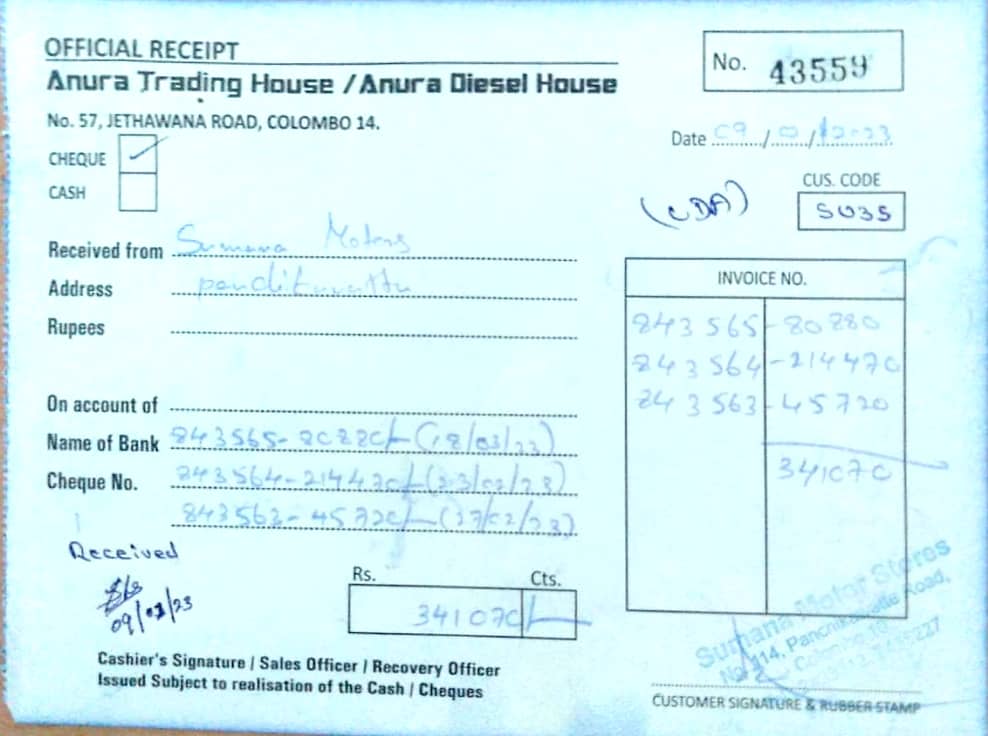 OFFICIAL RECEIPT
Anura Trading House / Anura Diesel House
No. 57, JETHAWANA ROAD, COLOMBO 14.
No. 43559
Date 09/02/2023
CHEQUE ✓
CASH
(CDA)
CUS. CODE
SU35
Received from Sumana Motors
Address
Rupees
On account of
Name of Bank 843565- 80280/- (18/03/23)
Cheque No. 843564-214470/-
843563- 45720/- (27/02/23)
INVOICE NO.
843 565 - 80280
843 564 - 214470
843 563 - 45720
341070
Received
09/02/23
Rs. Cts.
341070/-
Cashier's Signature / Sales Officer / Recovery Officer
Issued Subject to realisation of the Cash / Cheques
Sumana Motor Stores
Road,
CUSTOMER SIGNATURE & RUBBER STAMP